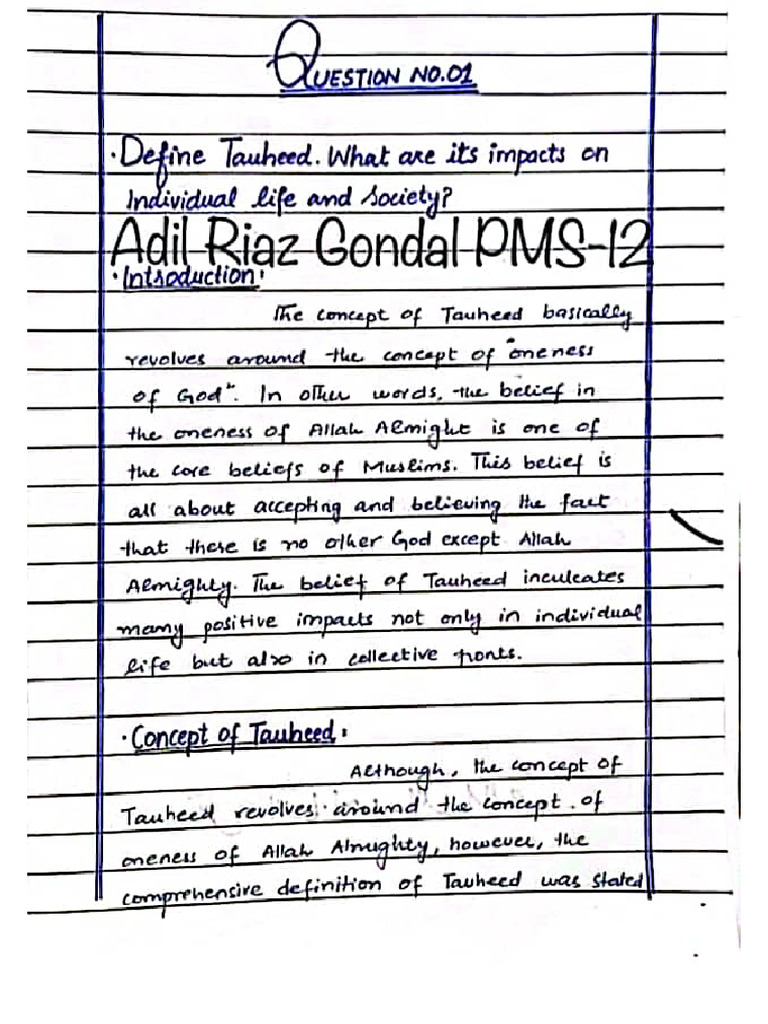 QUESTION NO.01
·Define Tauheed. What are its impacts on
Individual life and Society?
Adil Riaz Gondal PMS-12
·Introduction:
The concept of Tauheed basically
revolves around the concept of "oneness
of God". In other words, the belief in
the oneness of Allah Almight is one of
the core beliefs of Muslims. This belief is
all about accepting and believing the fact
that there is no other God except Allah
Almighty. The belief of Tauheed inculcates
many positive impacts not only in individual
life but also in collective fronts.
·Concept of Tauheed:
Although, the concept of
Tauheed revolves around the concept of
oneness of Allah Almughty, however, the
comprehensive definition of Tauheed was stated